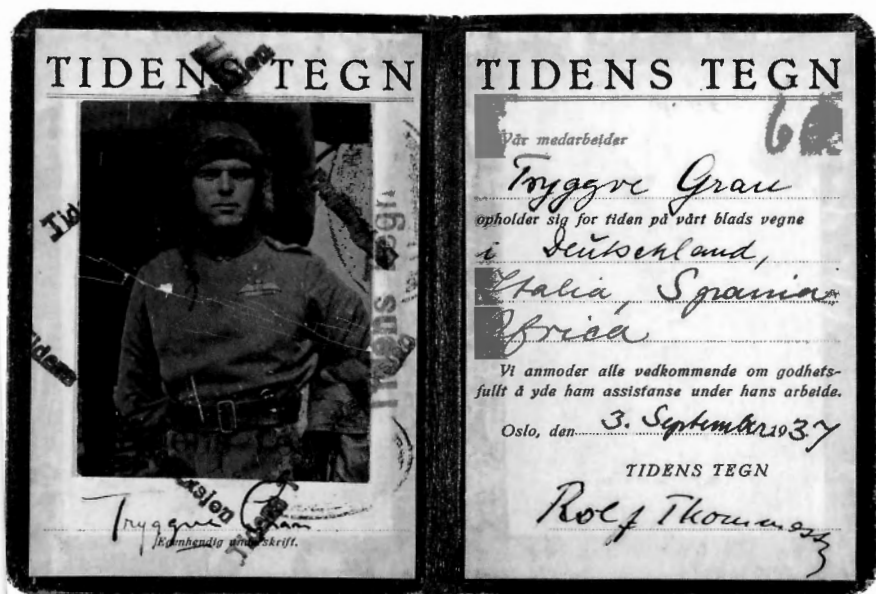 TIDENS TEGN
Tidens Tegn
Tryggve Gran
Egenhendig underskrift.
TIDENS TEGN
Vår medarbeider
Tryggve Gran
opholder sig for tiden på vårt blads vegne
i Deutschland,
Italia, Spania
Africa
Vi anmoder alle vedkommende om godhets-
fullt å yde ham assistanse under hans arbeide.
Oslo, den 3. September 1937
TIDENS TEGN
Rolf Thommessen